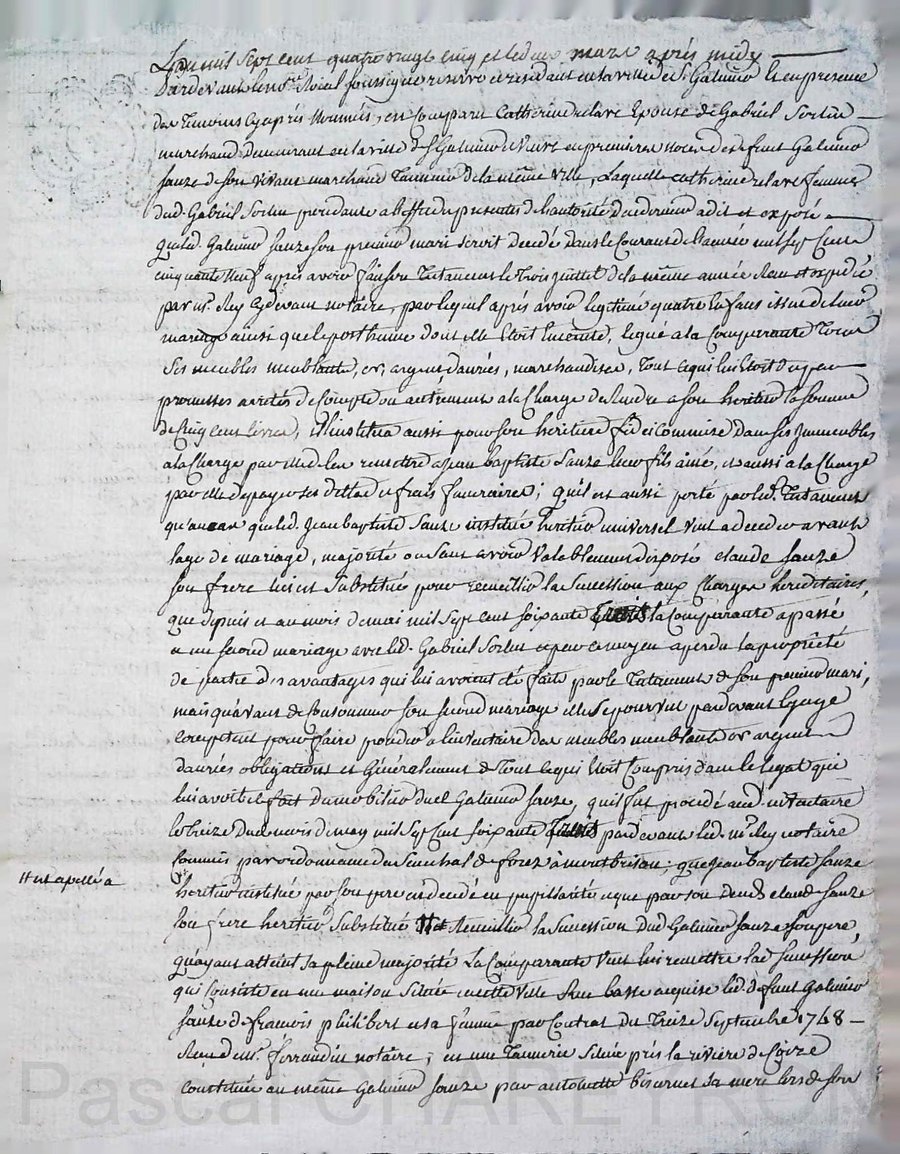 L'an mil sept cent quatre vingt cinq et le douze mars après midy
Pardevant le no.re Royal soussigné reservé et residant en la ville de St Galmier et en presence
des temoins cy après nommés, est comparu Catherine relave Epouse de Gabriel Sorlin
marchand demeurant en la ville de St Galmier et veuve en premieres noces de defunt Galmier
sauze de son vivant marchand Tanneur de la même ville, Laquelle catherine relave femme
dud. Gabriel Sorlin procedante a l'effet des presentes de l'autorité du dernier a dit et exposé
que led. Galmier sauze son premier mari seroit decedé dans le Courant de l'année mil sept Cent
cinquante neuf après avoir fait son Testament le trois juillet de la même année Reçu et expédié
par m.e Rey cydevant notaire, par lequel après avoir legitimé quatre Enfans issus de leur
mariage ainsi que le posthume dont elle Etoit Enceinte, legué a la Comparante Tous
Ses meubles meublants, or, argent danrées, marchandises, Tout ce qui lui Etoit du par
promesses arrêtés de Compte ou autrement a la Charge de Rendre a son heritier la somme
de Cinq Cent livres, Il l'institua aussi pour son heritiere fideicommise dans ses Immeubles
a la Charge par elle de les remettre a jean baptiste Sauze leur fils ainé, et aussi a la Charge
par elle de payer ses dettes et frais funeraires; qu'il est aussi porté par led. Testament
qu'au cas que led. Jean baptiste Sauze institué heritier universel vint a deceder avant
l'age de mariage, majorité ou sans avoir valablement disposé claude sauze
son frere lui est Substitué pour recueillir la Succession aux Charges hereditaires,
que depuis et au mois de mai mil Sept cent soixante la Comparante a passé
a un second mariage avec led. Gabriel Sorlin et par ce moyen a perdu la propriété
de partie des avantages qui lui avoient été faits par le Testament de son premier mari,
mais qu'avant de Consommer son second mariage elle se pourvut pardevant le juge
competent pour faire proceder a l'inventaire des meubles meublants or argent
danrées obligations et Généralement de Tout ce qui Etoit Compris dans le legat qui
lui avoit été fait du mobilier dud Galmier sauze, qu'il fut procédé aud. inventaire
le treize dud. mois de may mil Sept Cent soixante pardevant led. m.e Rey notaire
Commis par ordonnance du Senechal de forez a montbrison; que jean baptiste sauze
heritier institué par son pere est decedé en pupillarité et que par son decès claude sauze
son frere heritier Substitué # Recueillir la Succession dud Galmier sauze son pere,
# est apellé a
qu'ayant atteint sa pleine majorité La Comparante veut lui remettre lad. succession
qui Consiste en une maison Située en cette ville Rue basse acquise led. defunt Galmier
sauze de françois philibert et sa femme par Contrat du Treize Septembre 1748
Reçu de m.e ferrandin notaire; en une Tannerie Située près la riviere de Coize
constituée au même Galmier sauze par antoinette bisernet sa mere lors de son
Pascal CHAREYRON